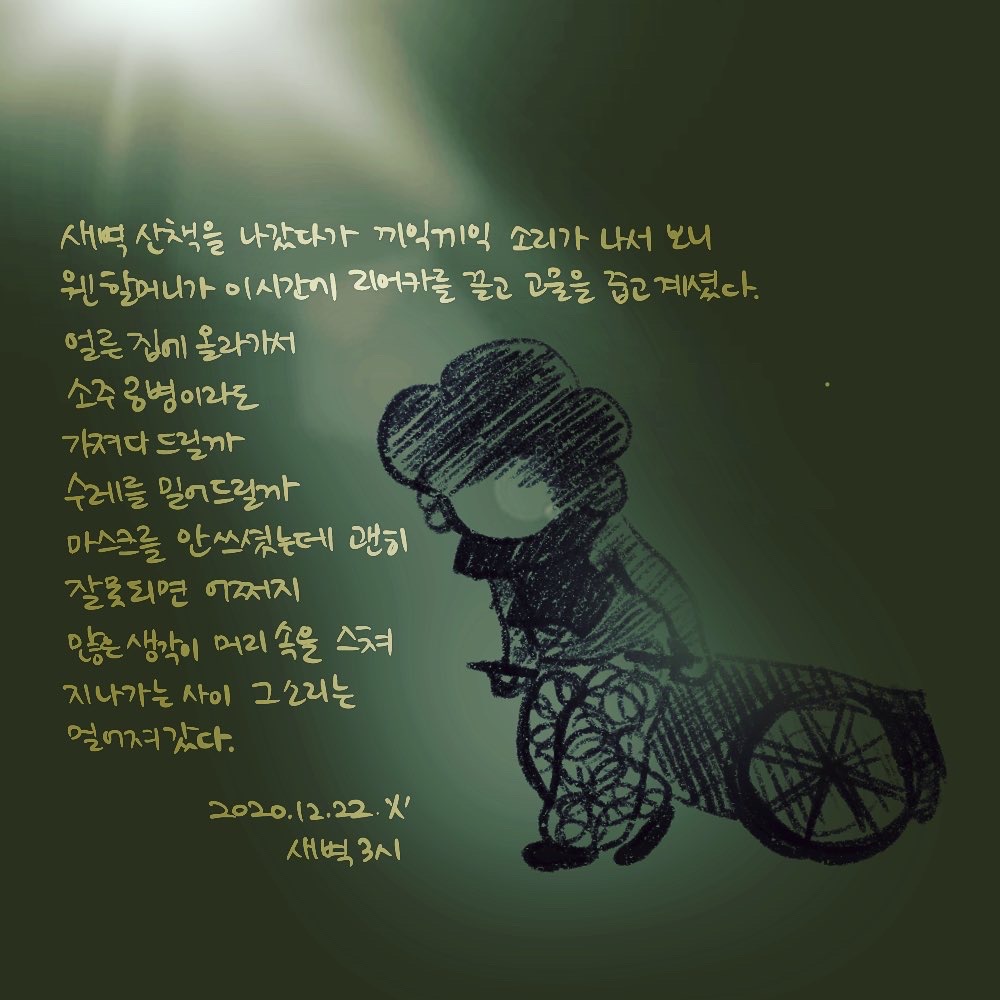 새벽 산책을 나갔다가 끼익끼익 소리가 나서 보니
웬 할머니가 이 시간에 리어카를 끌고 고물을 줍고 계셨다.
얼른 집에 올라가서
소주 공병이라도
가져다 드릴까
수레를 밀어드릴까
마스크를 안쓰셨는데 괜히
잘못되면 어쩌지
많은 생각이 머리 속을 스쳐
지나가는 사이 그 소리는
멀어져 갔다.
2020.12.22.
새벽 3시